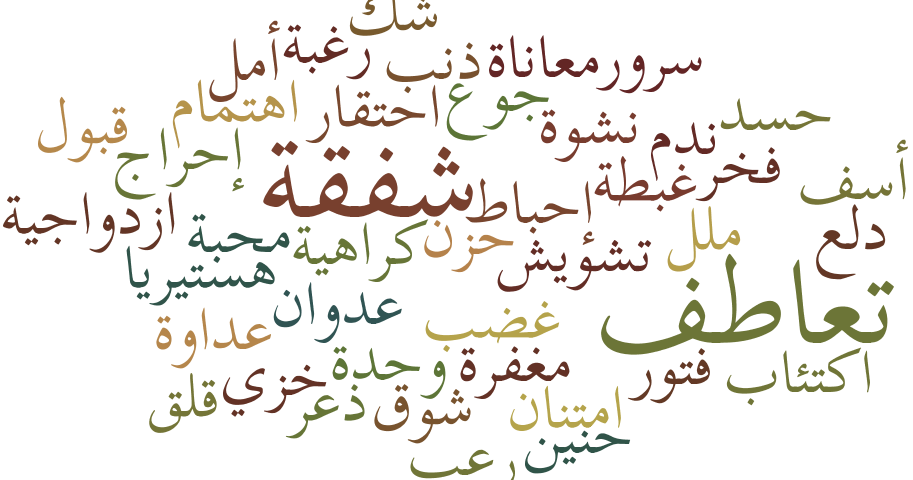 شك
سرور
معاناة
ذنب
رغبة
أمل
حسد
جوع
احتقار
اهتمام
قبول
ندم
نشوة
إحراج
أسف
فخر
غبطة
احباط
شفقة
ازدواجية
دلع
ملل
تشؤيش
حزن
كراهية
محبة
هستيريا
تعاطف
عدوان
غضب
عداوة
اكتئاب
فتور
مغفرة
وحدة
خزي
قلق
ذعر
شوق
امتنان
حنين
رعب